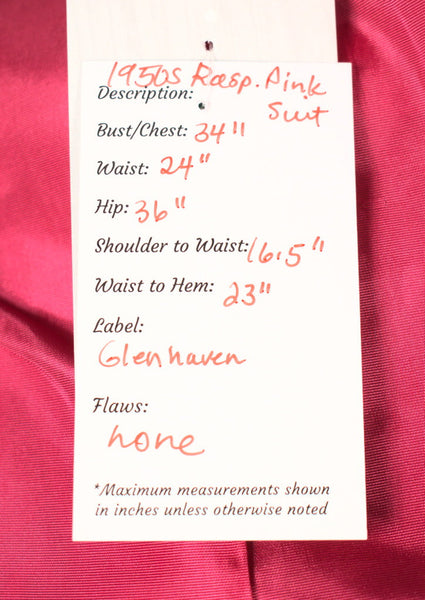 1950s Rasp. Pink
Description: Suit
Bust/Chest: 34"
Waist: 24"
Hip: 36"
Shoulder to Waist: 16.5"
Waist to Hem: 23"
Label:
Glenhaven
Flaws:
none
*Maximum measurements shown
in inches unless otherwise noted